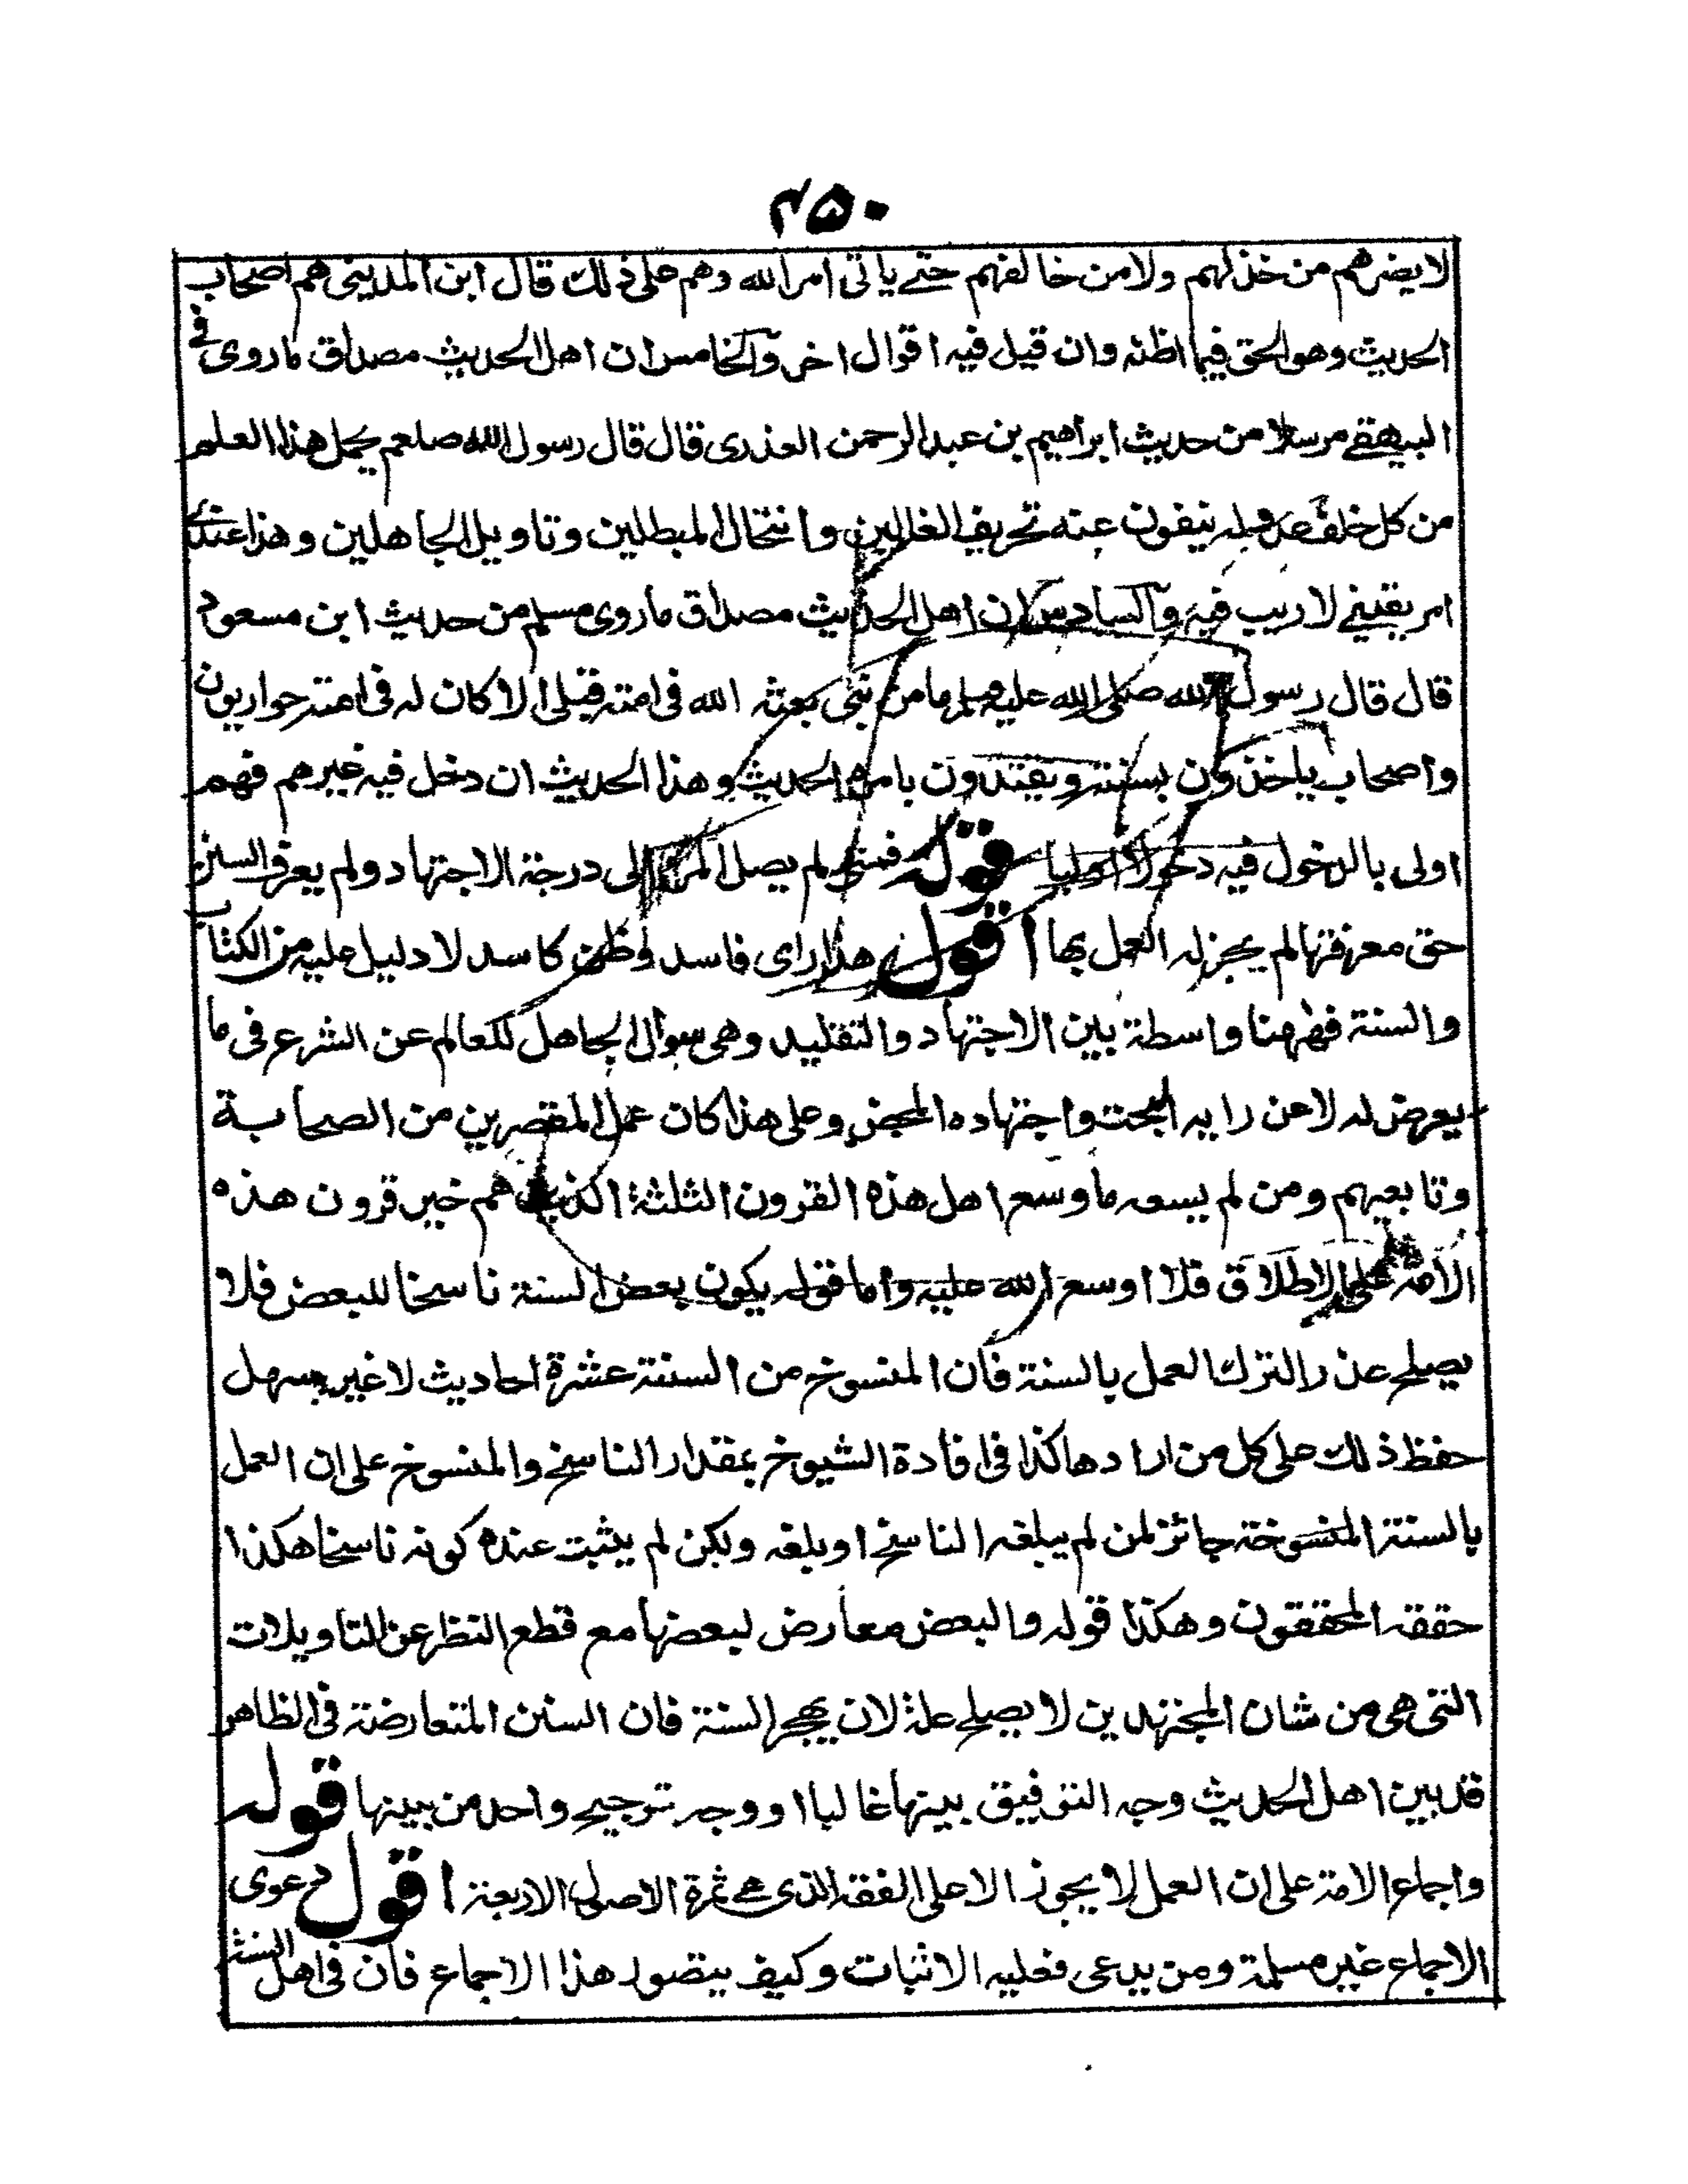 ۲۵۰
لا يضرهم من خذلهم ولا من خالفهم حتے ياتی امر الله وهم على ذلك قال ابن المدينی هم اصحاب
الحديث وهو الحق فيما اظنه وان قيل فيه اقوال اخر والخامس ان اهل الحديث مصداق ما روى فی
البيهقے مرسلا من حديث ابراهيم بن عبد الرحمن العذرى قال قال رسول الله صلعم يحمل هذا العلم
من كل خلف عدوله ينفون عنه تحريف الغالين وانتحال المبطلين وتاويل الجاهلين وهذا عندے
امر يقينے لا ريب فيه والسادس ان اهل الحديث مصداق ما روى مسلم من حديث ابن مسعود
قال قال رسول الله صلى الله عليه وسلم ما من نبی بعثه الله فی امته قبلی الا كان له فی امته حواريون
واصحاب ياخذون بسنته ويقتدون بامره الحديث وهذا الحديث ان دخل فيه غيرهم فهم
اولى بالدخول فيه دخولا اوليا قوله فمتى لم يصل المرء الى درجة الاجتهاد ولم يعرف السنن
حق معرفتها لم يجز له العمل بها اقول هذا راى فاسد وظن كاسد لا دليل عليه من الكتاب
والسنة فههنا واسطة بين الاجتهاد والتقليد وهی سوال الجاهل للعالم عن الشرع فی ما
يعرض له لا عن رايه البحت واجتهاده المحض وعلى هذا كان عمل المقصرين من الصحابة
وتابعيهم ومن لم يسعه ما وسع اهل هذه القرون الثلثة الذين هم خير قرون هذه
الامة على الاطلاق فلا اوسع الله عليه واما قوله يكون بعض السنة ناسخا للبعض فلا
يصلح عذرا لترك العمل بالسنة فان المنسوخ من السنة عشرة احاديث لا غير يسهل
حفظ ذلك على كل من ارادها كذا فی افادة الشيوخ بمقدار الناسخ والمنسوخ على ان العمل
بالسنة المنسوخة جائز لمن لم يبلغه الناسخ او بلغه ولكن لم يثبت عنده كونه ناسخا هكذا
حققه المحققون وهكذا قوله والبعض معارض لبعضها مع قطع النظر عن التاويلات
التی هی من شان المجتهدين لا يصلح علة لان يهجر السنة فان السنن المتعارضة فی الظاهر
قد بين اهل الحديث وجه التوفيق بينها غالبا او وجه ترجيح واحد من بينها قوله
واجماع الامة على ان العمل لا يجوز الا على الفقه الذى هے ثمرة الاصول الاربعة اقول دعوى
الاجماع غير مسلمة ومن يدعی فعليه الاثبات وكيف يتصور هذا الاجماع فان فی اهل السنة